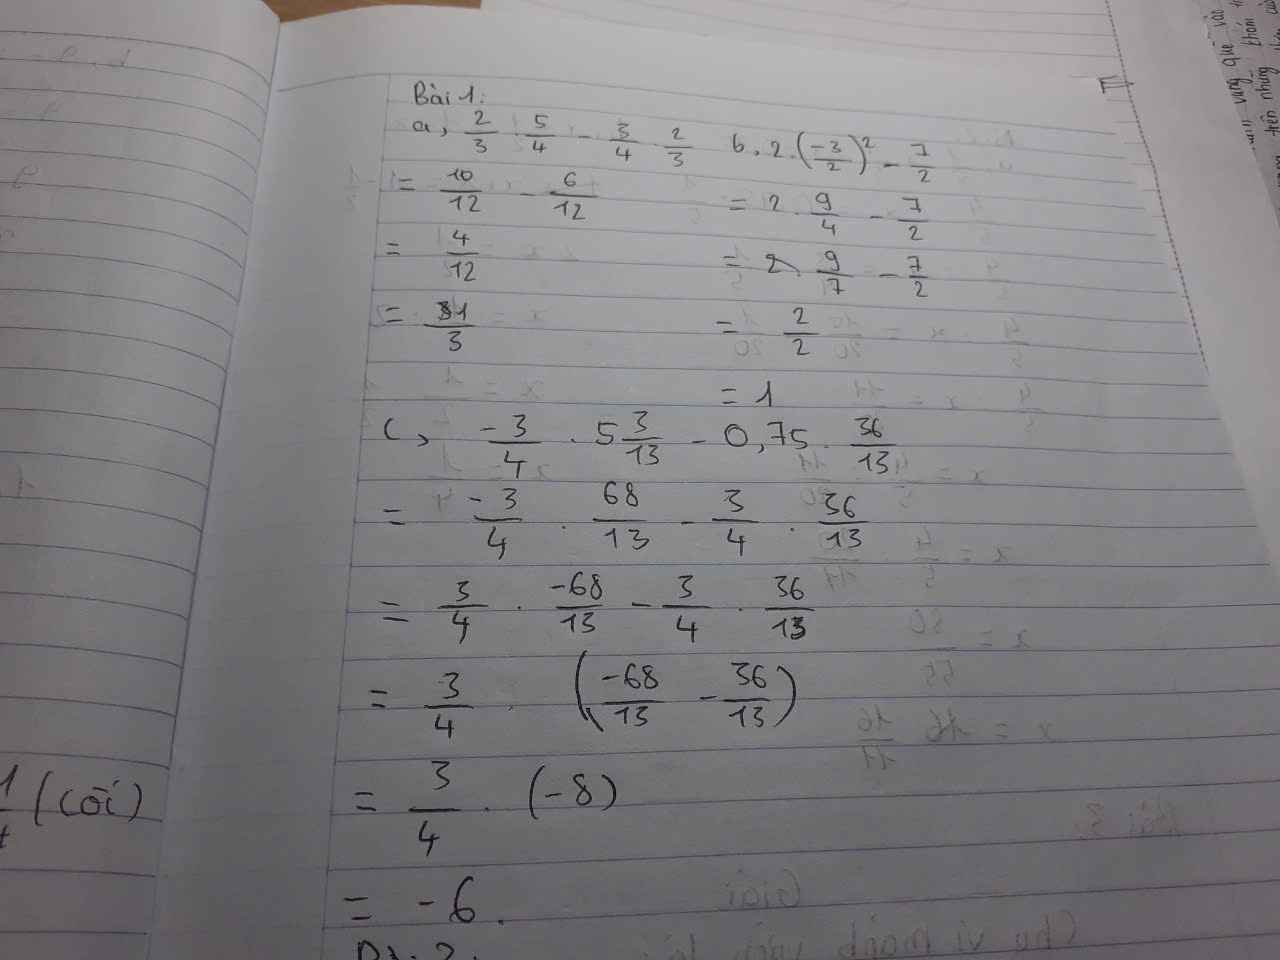 Bài 1:
a, 2/3 . 5/4 - 3/4 . 2/3
= 10/12 - 6/12
= 4/12
= 1/3
b. 2.(-3/2)² - 7/2
= 2 . 9/4 - 7/2
= 2 . 9/7 - 7/2
= 2/2
= 1
c, -3/4 . 5 3/13 - 0,75 . 36/13
= -3/4 . 68/13 - 3/4 . 36/13
= 3/4 . -68/13 - 3/4 . 36/13
= 3/4 . (-68/13 - 36/13)
= 3/4 . (-8)
= -6.
(cối)